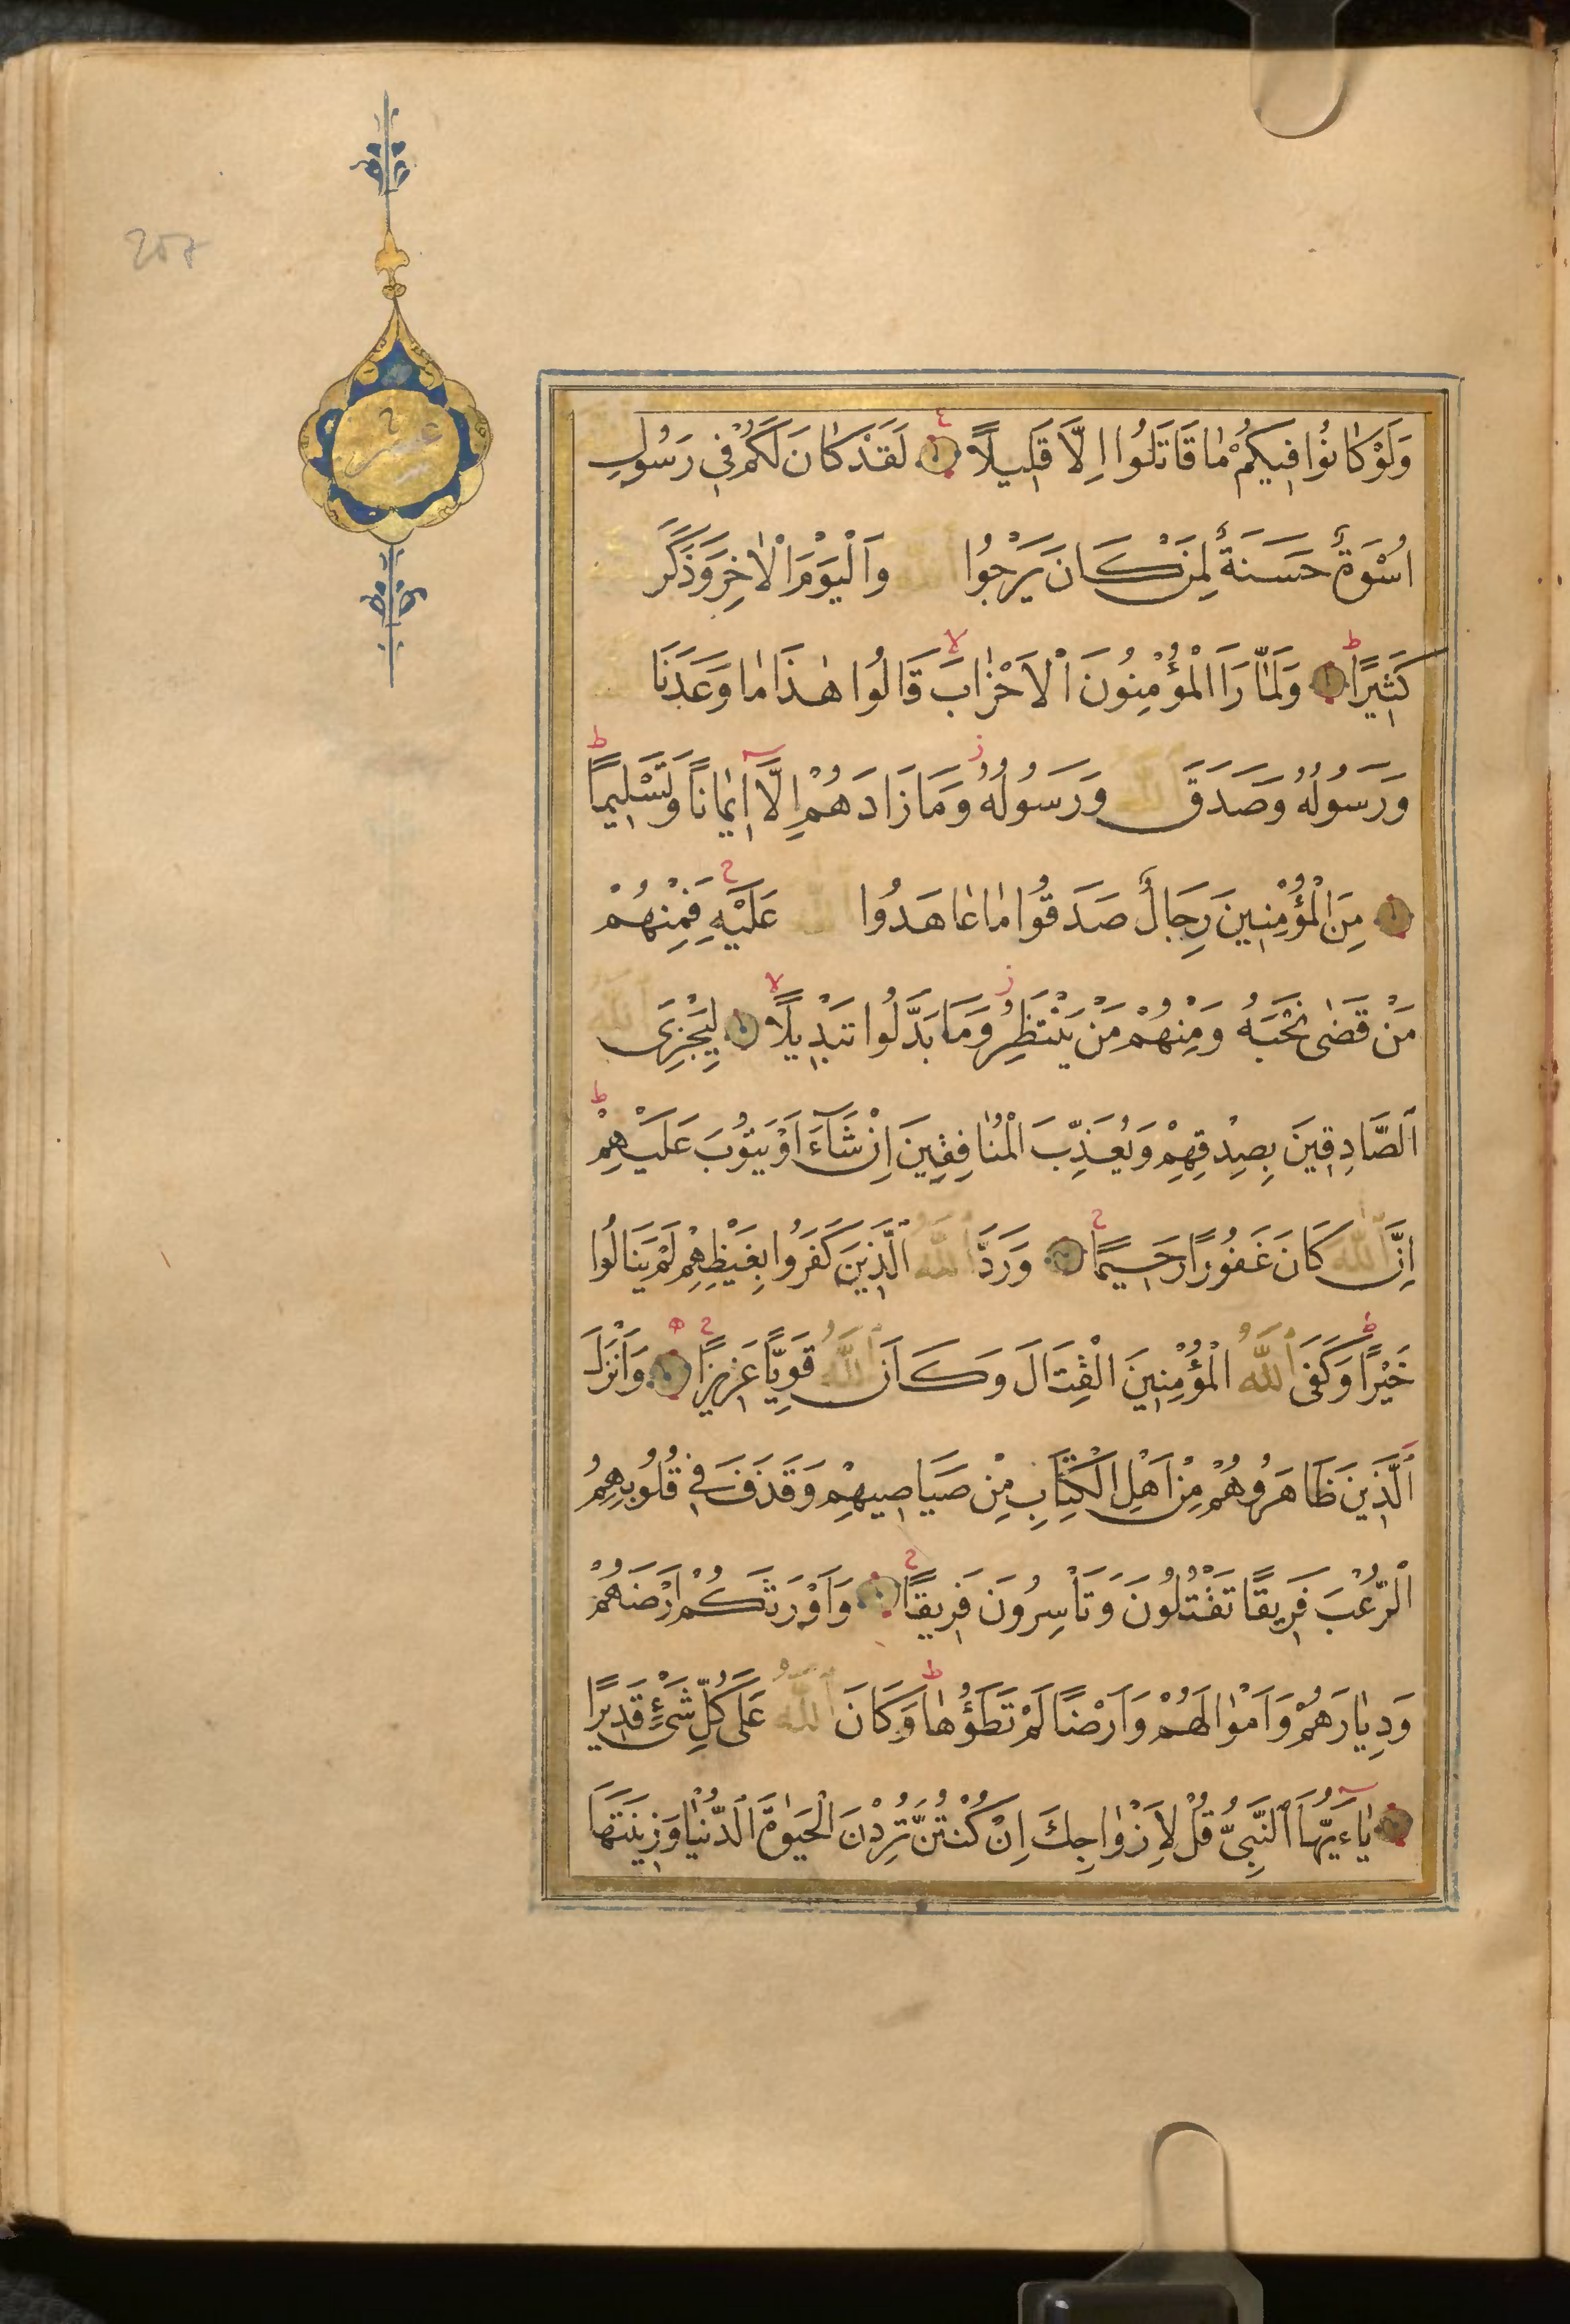 208
عشر
وَلَوْ كَانُوا فِيكُمْ مَا قَاتَلُوا اِلَّا قَلِيلًا لَقَدْ كَانَ لَكُمْ فِي رَسُولِ
اللّٰهِ اُسْوَةٌ حَسَنَةٌ لِمَنْ كَانَ يَرْجُوا اللّٰهَ وَالْيَوْمَ الْاٰخِرَ وَذَكَرَ اللّٰهَ
كَثِيرًا وَلَمَّا رَاَ الْمُؤْمِنُونَ الْاَحْزَابَ قَالُوا هٰذَا مَا وَعَدَنَا اللّٰهُ
وَرَسُولُهُ وَصَدَقَ اللّٰهُ وَرَسُولُهُ وَمَا زَادَهُمْ اِلَّا اِيمَانًا وَتَسْلِيمًا
مِنَ الْمُؤْمِنِينَ رِجَالٌ صَدَقُوا مَا عَاهَدُوا اللّٰهَ عَلَيْهِ فَمِنْهُمْ
مَنْ قَضٰى نَحْبَهُ وَمِنْهُمْ مَنْ يَنْتَظِرُ وَمَا بَدَّلُوا تَبْدِيلًا لِيَجْزِىَ اللّٰهُ
الصَّادِقِينَ بِصِدْقِهِمْ وَيُعَذِّبَ الْمُنَافِقِينَ اِنْ شَآءَ اَوْ يَتُوبَ عَلَيْهِمْ
اِنَّ اللّٰهَ كَانَ غَفُورًا رَحِيمًا وَرَدَّ اللّٰهُ الَّذِينَ كَفَرُوا بِغَيْظِهِمْ لَمْ يَنَالُوا
خَيْرًا وَكَفَى اللّٰهُ الْمُؤْمِنِينَ الْقِتَالَ وَكَانَ اللّٰهُ قَوِيًّا عَزِيزًا وَاَنْزَلَ
الَّذِينَ ظَاهَرُوهُمْ مِنْ اَهْلِ الْكِتَابِ مِنْ صَيَاصِيهِمْ وَقَذَفَ فِي قُلُوبِهِمُ
الرُّعْبَ فَرِيقًا تَقْتُلُونَ وَتَأْسِرُونَ فَرِيقًا وَاَوْرَثَكُمْ اَرْضَهُمْ
وَدِيَارَهُمْ وَاَمْوَالَهُمْ وَاَرْضًا لَمْ تَطَؤُهَا وَكَانَ اللّٰهُ عَلٰى كُلِّ شَىْءٍ قَدِيرًا
يَاءَيُّهَا النَّبِىُّ قُلْ لِاَزْوَاجِكَ اِنْ كُنْتُنَّ تُرِدْنَ الْحَيٰوةَ الدُّنْيَا وَزِينَتَهَا